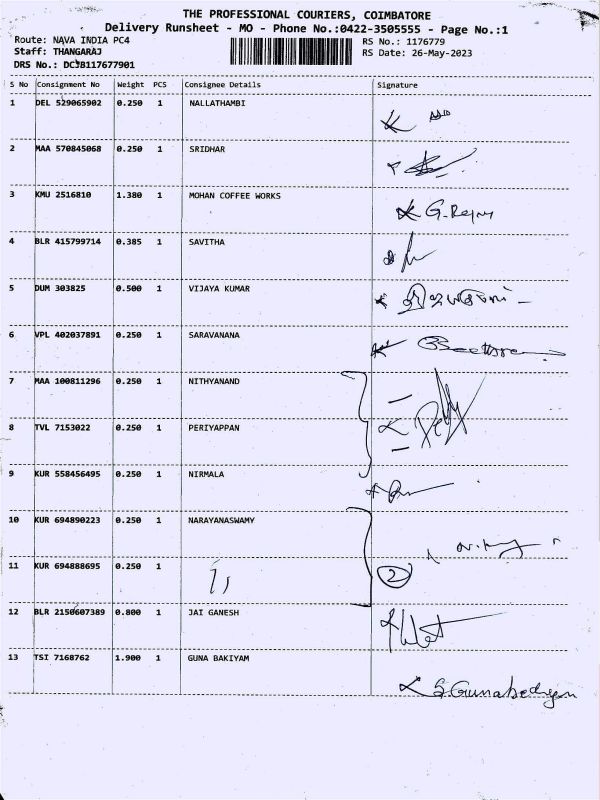 THE PROFESSIONAL COURIERS, COIMBATORE
Delivery Runsheet - MO - Phone No.:0422-3505555 - Page No.:1
Route: NAVA INDIA PC4 RS No.: 1176779
Staff: THANGARAJ RS Date: 26-May-2023
DRS No.: DCJB117677901
S No Consignment No Weight PCS Consignee Details Signature
1 DEL 529065902 0.250 1 NALLATHAMBI
2 MAA 570845068 0.250 1 SRIDHAR
3 KMU 2516810 1.380 1 MOHAN COFFEE WORKS
4 BLR 415799714 0.385 1 SAVITHA
5 DUM 303825 0.500 1 VIJAYA KUMAR
6 VPL 402037891 0.250 1 SARAVANANA
7 MAA 100811296 0.250 1 NITHYANAND
8 TVL 7153022 0.250 1 PERIYAPPAN
9 KUR 558456495 0.250 1 NIRMALA
10 KUR 694890223 0.250 1 NARAYANASWAMY
11 KUR 694888695 0.250 1 2
12 BLR 2150607389 0.800 1 JAI GANESH
13 TSI 7168762 1.900 1 GUNA BAKIYAM